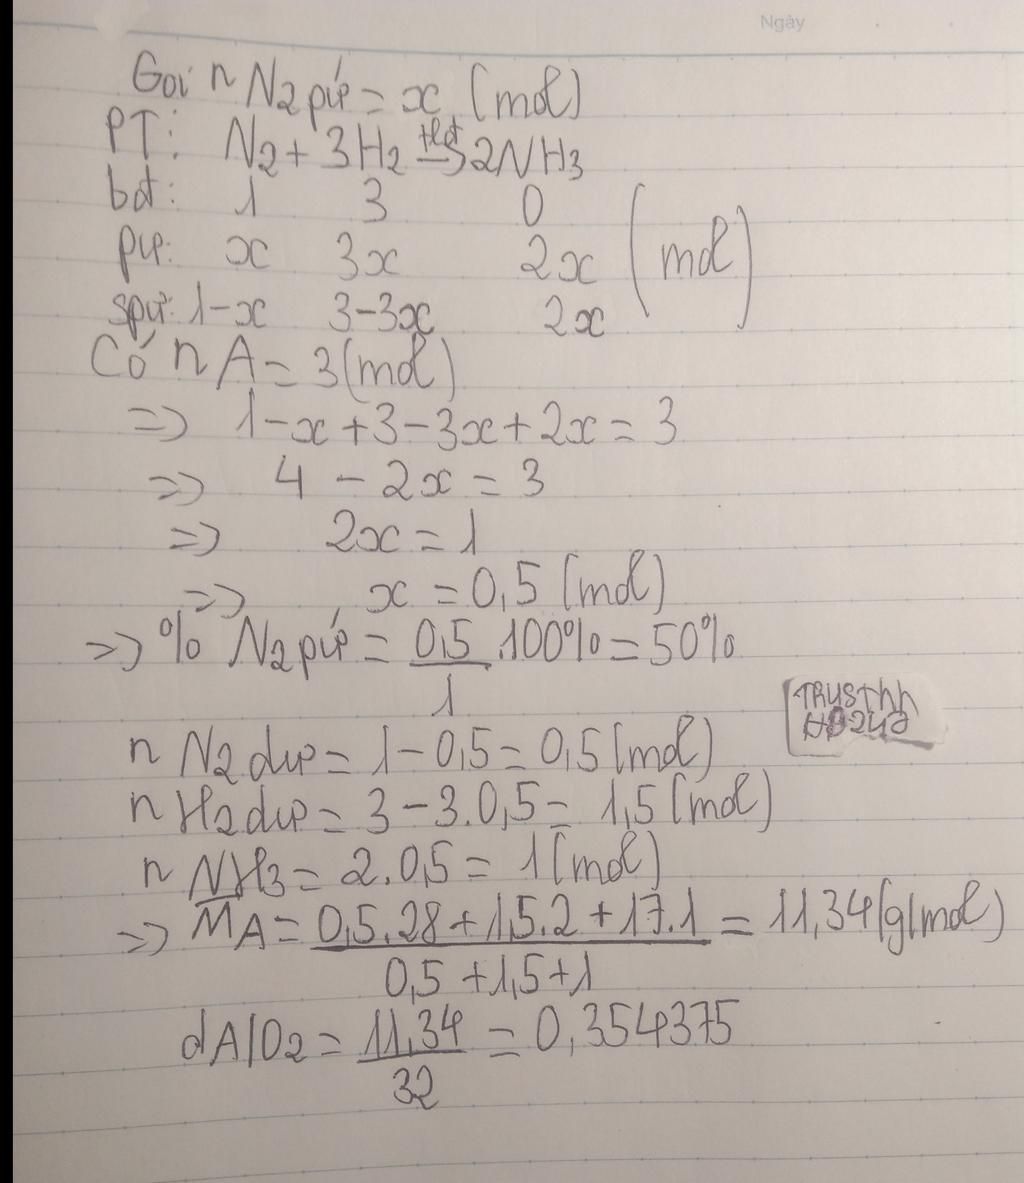 Ngày
Gọi n N2 pứ = x (mol)
PT: N2 + 3H2 → 2NH3
bđ: 1 3 0
pư: x 3x 2x (mol)
spứ: 1-x 3-3x 2x
Có n A = 3 (mol)
=> 1-x+3-3x+2x = 3
=> 4 - 2x = 3
=> 2x = 1
=> x = 0,5 (mol)
=> % N2 pứ = 0,5/1 .100% = 50%
TRUSThh
n N2 dư = 1-0,5 = 0,5 (mol)
n H2 dư = 3-3.0,5 = 1,5 (mol)
n NH3 = 2.0,5 = 1 (mol)
=> M̅A = 0,5.28+1,5.2+17.1 / 0,5+1,5+1 = 11,34 (g/mol)
dA/O2 = 11,34/32 = 0,354375